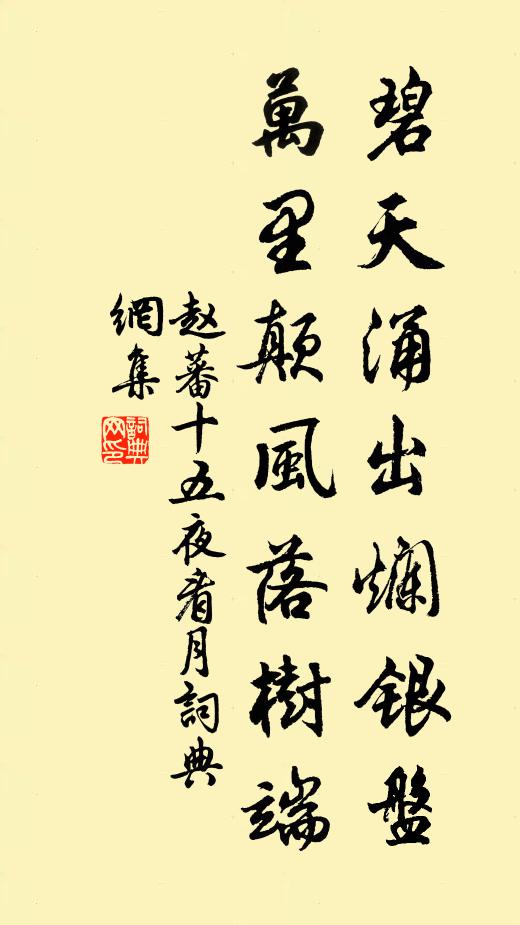 碧天涌出爛銀盤
萬里顛風落樹端
赵蕃十五夜看月詞典
網集
詞典
网印